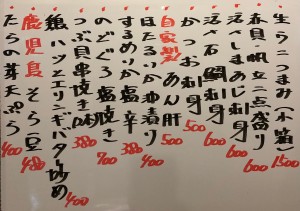 生うにつまみ(小箱) 1500
春貝・帆立二点盛り 600
活〆しまあじ刺身 600
活〆石鯛刺身 600
かつお刺身 500
自家製あん肝 500
ほたるいか沖漬り 400
するめいか塩辛 380
のどぐろ塩焼き 900
つぶ貝串焼き(2本) 380
鶏ハツとエリンギバター炒め 400
鹿児島そら豆 480
たらの芽天ぷら 400